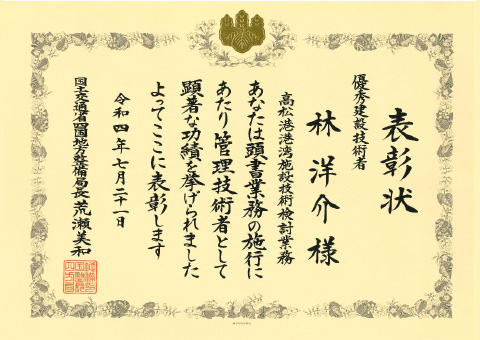 表彰状
優秀建設技術者
林洋介様
高松港港湾施設技術検討業務
あなたは頭書業務の施行に
あたり管理技術者として
顕著な功績を挙げられました
よってここに表彰します
令和四年七月二十一日
国土交通省四国地方整備局長荒瀬美和